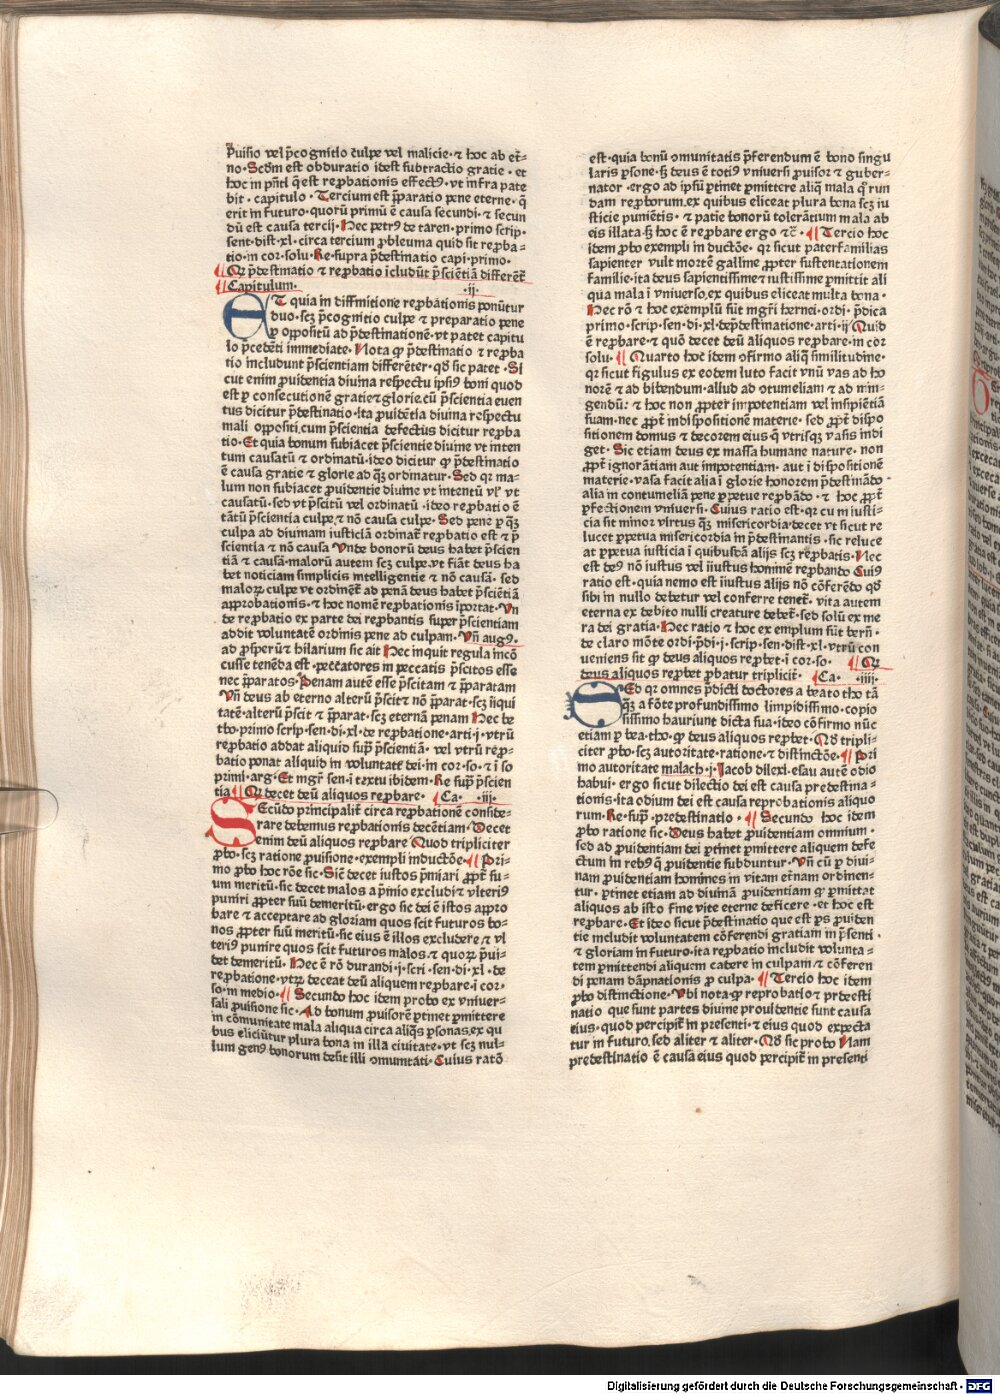 p̄uisio vel p̄cognitio culpe vel malicie· ⁊ hoc ab et̄-
no· Scd̄m est obduratio idest subtractio gratie· et
hoc in pn̄ti q̄ est rep̱bationis effectꝰ· vt infra pate
bit· capitulo· Tercium est p̄paratio pene eterne· q̄
erit in futuro· quorū primū ē causa secundi· ⁊ secun
dū est causa tercij· Hec petrꝰ de taren· primo scrip-
sent· dist· xl· circa tercium ꝓbleuma quid sit rep̱ba-
tio· in cor· solu· Re· supra p̄destinatio capi· primo·
Qꝛ p̄destinatio ⁊ rep̱batio īcludūt p̄sciētiā differēt̄
Capitulum· ·ij·
ET quia in diffinitione rep̱bationis ponūtur
duo· scꝫ p̄cognitio culpe ⁊ preparatio pene
p oppositū ad p̄destinationē· vt patet capitu
lo p̄cedēti immediate· Nota ꝙ p̄destinatio ⁊ rep̱ba
tio includunt p̄scientiam differēter· qd̄ sic patet· Si
cut enim ꝓuidentia diuina respectu ipsiꝰ boni quod
est p consecutionē gratie ⁊ glorie, cū p̄scientia euen
tus dicitur p̄destinatio· ita ꝓuidētia diuina respectu
mali oppositi, cum p̄scientia defectus dicitur rep̱ba
tio· Et quia bonum subiacet p̄scientie diuine vt inten
tum causatū ⁊ ordinatū· ideo dicitur ꝙ p̄destinatio
ē causa gratie ⁊ glorie ad qͣꝫ ordinatur· Sed qꝛ ma-
lum non subiacet ꝓuidentie diuine vt intentū vl' vt
causatū· sed vt p̄scitū vel ordinatū· ideo rep̱batio ē
tātū p̄scientia culpe, ⁊ nō causa culpe· Sed pene p qͣꝫ
culpa ad diuinam iusticiā ordinat̄ rep̱batio est ⁊ p̄
scientia ⁊ nō causa Unde bonorū deus habet p̄scien
tiā ⁊ causā· malorū autem scꝫ culpe, vt fiāt deus ha
bet noticiam simplicis intelligentie ⁊ nō causā· sed
maloꝝ culpe vt ordinēt̄ ad penā deus habet p̄sciētiā
approbationis· ⁊ hoc nomē rep̱bationis īportat· Un
de rep̱batio ex parte dei rep̱bantis super p̄scientiam
addit voluntatē ordinis pene ad culpam· Un̄ augꝰ·
ad ꝓsperū ⁊ hilarium sic ait Hec inquit regula incō
cusse tenēda est· peccatores in peccatis p̄scitos esse
nec p̄paratos· Penam autē esse p̄scitam ⁊ p̄paratam
Un̄ deus ab eterno alterū p̄scit ⁊ nō p̄parat· scꝫ iiqui
tatē· alterū p̄scit ⁊ p̄parat· scꝫ eternā penam Hec be
tho· primo scrip· sen· di· xl· de rep̱batione· arti· j· vtrū
rep̱batio addat aliquid sup̄ p̄scientiā· vel vtrū rep̱-
batio ponat aliquid in voluntate dei· in cor· so· ⁊ ī so
primi· arg· Et mgr̄ sen· i textu ibidem· Re sup̄ p̄scien
tia Qꝛ decet deū aliquos rep̱bare· Ca· ·iij·
SEcūdo principalit̄ circa rep̱bationē conside-
rare debemus rep̱bationis decētiam· Decet
enim deū aliquos rep̱bare Quod tripliciter
ꝓbo· scꝫ ratione ꝓuisione· exempli inductōe· Pri-
mo ꝓbo hoc rōe sic· Sic̄ decet iustos p̄miari ꝓpt̄ su-
um meritū· sic decet malos a p̄mio excludi ⁊ vlteriꝰ
puniri ꝓpter suū demeritū· ergo sic dei ē istos appro
bare ⁊ acceptare ad gloriam quos scit futuros bo-
nos ꝓpter suū meritū· sic eius ē illos excludere ⁊ vl
teriꝰ punire quos scit futuros malos· ⁊ quoꝝ p̄ui-
det demeritū· Hec ē rō durandi· j· scri· sen· di· xl· de
rep̱batione· vtꝝ deceat deū aliquem rep̱bare· i cor·
so· in medio· Secundo hoc idem probo ex vniuer-
sali ꝓuisione sic· Ad bonum ꝓuisorē ꝑtinet ꝑmittere
in cōmunitate mala aliqua circa aliqͣs ꝑsonas, ex qu
bus eliciūtur plura bona in illa ciuitate· vt scꝫ nul-
lum genꝰ bonorum desit illi ꝯmunitati· Cuius ratō
est· quia bonū ꝯmunitatis p̄ferendum ē bono singu
laris ꝑsone· sꝫ deus ē totiꝰ vniuersi ꝓuisor ⁊ guber-
nator· ergo ad ipsū ꝑtinet ꝑmittere aliqͣ mala qͦrun
dam rep̱borum, ex quibus eliceat plura bona scꝫ iu
sticie puniētis· ⁊ patie bonorū tolerātium mala ab
eis illata· sꝫ hoc ē rep̱bare ergo ⁊c̄· Tercio hoc
idem ꝓbo exempli in ductōe· qꝛ sicut paterfamilias
sapienter vult mortē galline ꝓpter sustentationem
familie· ita deus sapientissime ⁊ iustissime ꝑmittit ali
qua mala ī vniuerso, ex quibus eliceat multa bona·
Hec rō ⁊ hoc exemplū sūt mgr̄i hernei· ordi· p̄dica
primo· scrip· sen· di· xl· de p̄destinatione· arti· ij Quid
ē rep̱bare· ⁊ quō decet deū aliquos rep̱bare· in cor
solu· Quarto hoc idem ꝯfirmo aliqͣ similitudine·
qꝛ sicut figulus ex eodem luto facit vnū vas ad ho
norē ⁊ ad bibendum· aliud ad ꝯtumeliam ⁊ ad min-
gendū: ⁊ hoc non ꝓpter impotentiam vel insipiētiā
suam· nec ꝓpt̄ indispositionē materie· sed ꝓpt̄ dispo
sitionem domus ⁊ decorem eius q̄ vtrisqꝫ vasis indi
get· Sic etiam deus ex massa humane nature· non
ꝓpt̄ ignorātiam aut impotentiam· aut i dispositionē
materie· vasa facit alia ī glorie honorem p̄destinādo·
alia in contumeliā pene ꝑpetue rep̱bādo· ⁊ hoc ꝓpt̄
ꝑfectionem vniuersi· Cuius ratio est· qꝛ cum iusti-
cia sit minor virtus qͣꝫ misericordia· decet vt sicut re
lucet ꝑpetua misericordia in p̄destinantis· sic reluce
at ꝑpetua iusticia ī quibusdā alijs scꝫ rep̱batis· Nec
est deꝰ nō iustus vel iīustus hominē rep̱bando Cuiꝰ
ratio est· quia nemo est iīustus alijs nō cōferēdo qd̄
sibi in nullo debetur vel conferre tenet̄· vita autem
eterna ex debito nulli creature debet̄· sed solū ex me
ra dei gratia· Hec ratio ⁊ hoc ex emplum sūt bern̄·
de claro mōte ordi· p̄di· j· scrip· sen· dist· xl· vtrū con
ueniens sit ꝙ deus aliquos rep̱bet· i cor· so· Qꝛ
deus aliquos rep̱bet ꝓbatur triplicit̄· Ca· ·iiij·
SEd qꝛ omnes p̄dicti doctores a beato tho tā
qͣꝫ a fōte profundissimo limpidissimo· copio
sissimo hauriunt dicta sua· ideo cōfirmo nūc
etiam p bea· tho· ꝙ deus aliquos rep̱bet· Qd̄ tripli-
citer ꝓbo· scꝫ autoritate· ratione· ⁊ distinctōe· Pri
mo autoritate malach· j· Jacob dilexi· esau autē odio
habui· ergo sicut dilectio dei est causa predestina-
tionis· ita odium dei est causa reprobationis aliquo
rum· Re· sup̄· predestinatio· Secundo hoc idem
ꝓbo ratione sic· Deus habet ꝓuidentiam omnium·
sed ad ꝓuidentiam dei ꝑtinet ꝑmittere aliquem defe
ctum in rebꝰ q̄ ꝓuidentie subduntur· Un̄ cū p diui-
nam ꝓuidentiam homines in vitam et̄nam ordinen-
tur· ꝑtinet etiam ad diuinā ꝓuidentiam ꝙ ꝑmittat
aliquos ab isto fine vite eterne deficere· et hoc est
rep̱bare· Et ideo sicut p̄destinatio que est ps̄ ꝓuiden
tie includit voluntatem cōferendi gratiam in p̄senti·
⁊ gloriam in futuro· ita rep̱batio includit volunta-
tem ꝑmittendi aliquem cadere in culpam ⁊ cōferen
di penam dāpnationis ꝓ culpa· Tercio hoc idem
ꝓbo distinctione· Ubi nota ꝙ reprobatio ⁊ prdesti
natio que sunt partes diuine prouidentie sunt causa
eius· quod percipit̄ in presenti· ⁊ eius quod expecta
tur in futuro, sed aliter ⁊ aliter· Qd̄ sic probo Nam
predestinatio ē causa eius quod percipit̄ in presenti
Digitalisierung gefördert durch die Deutsche Forschungsgemeinschaft - DFG